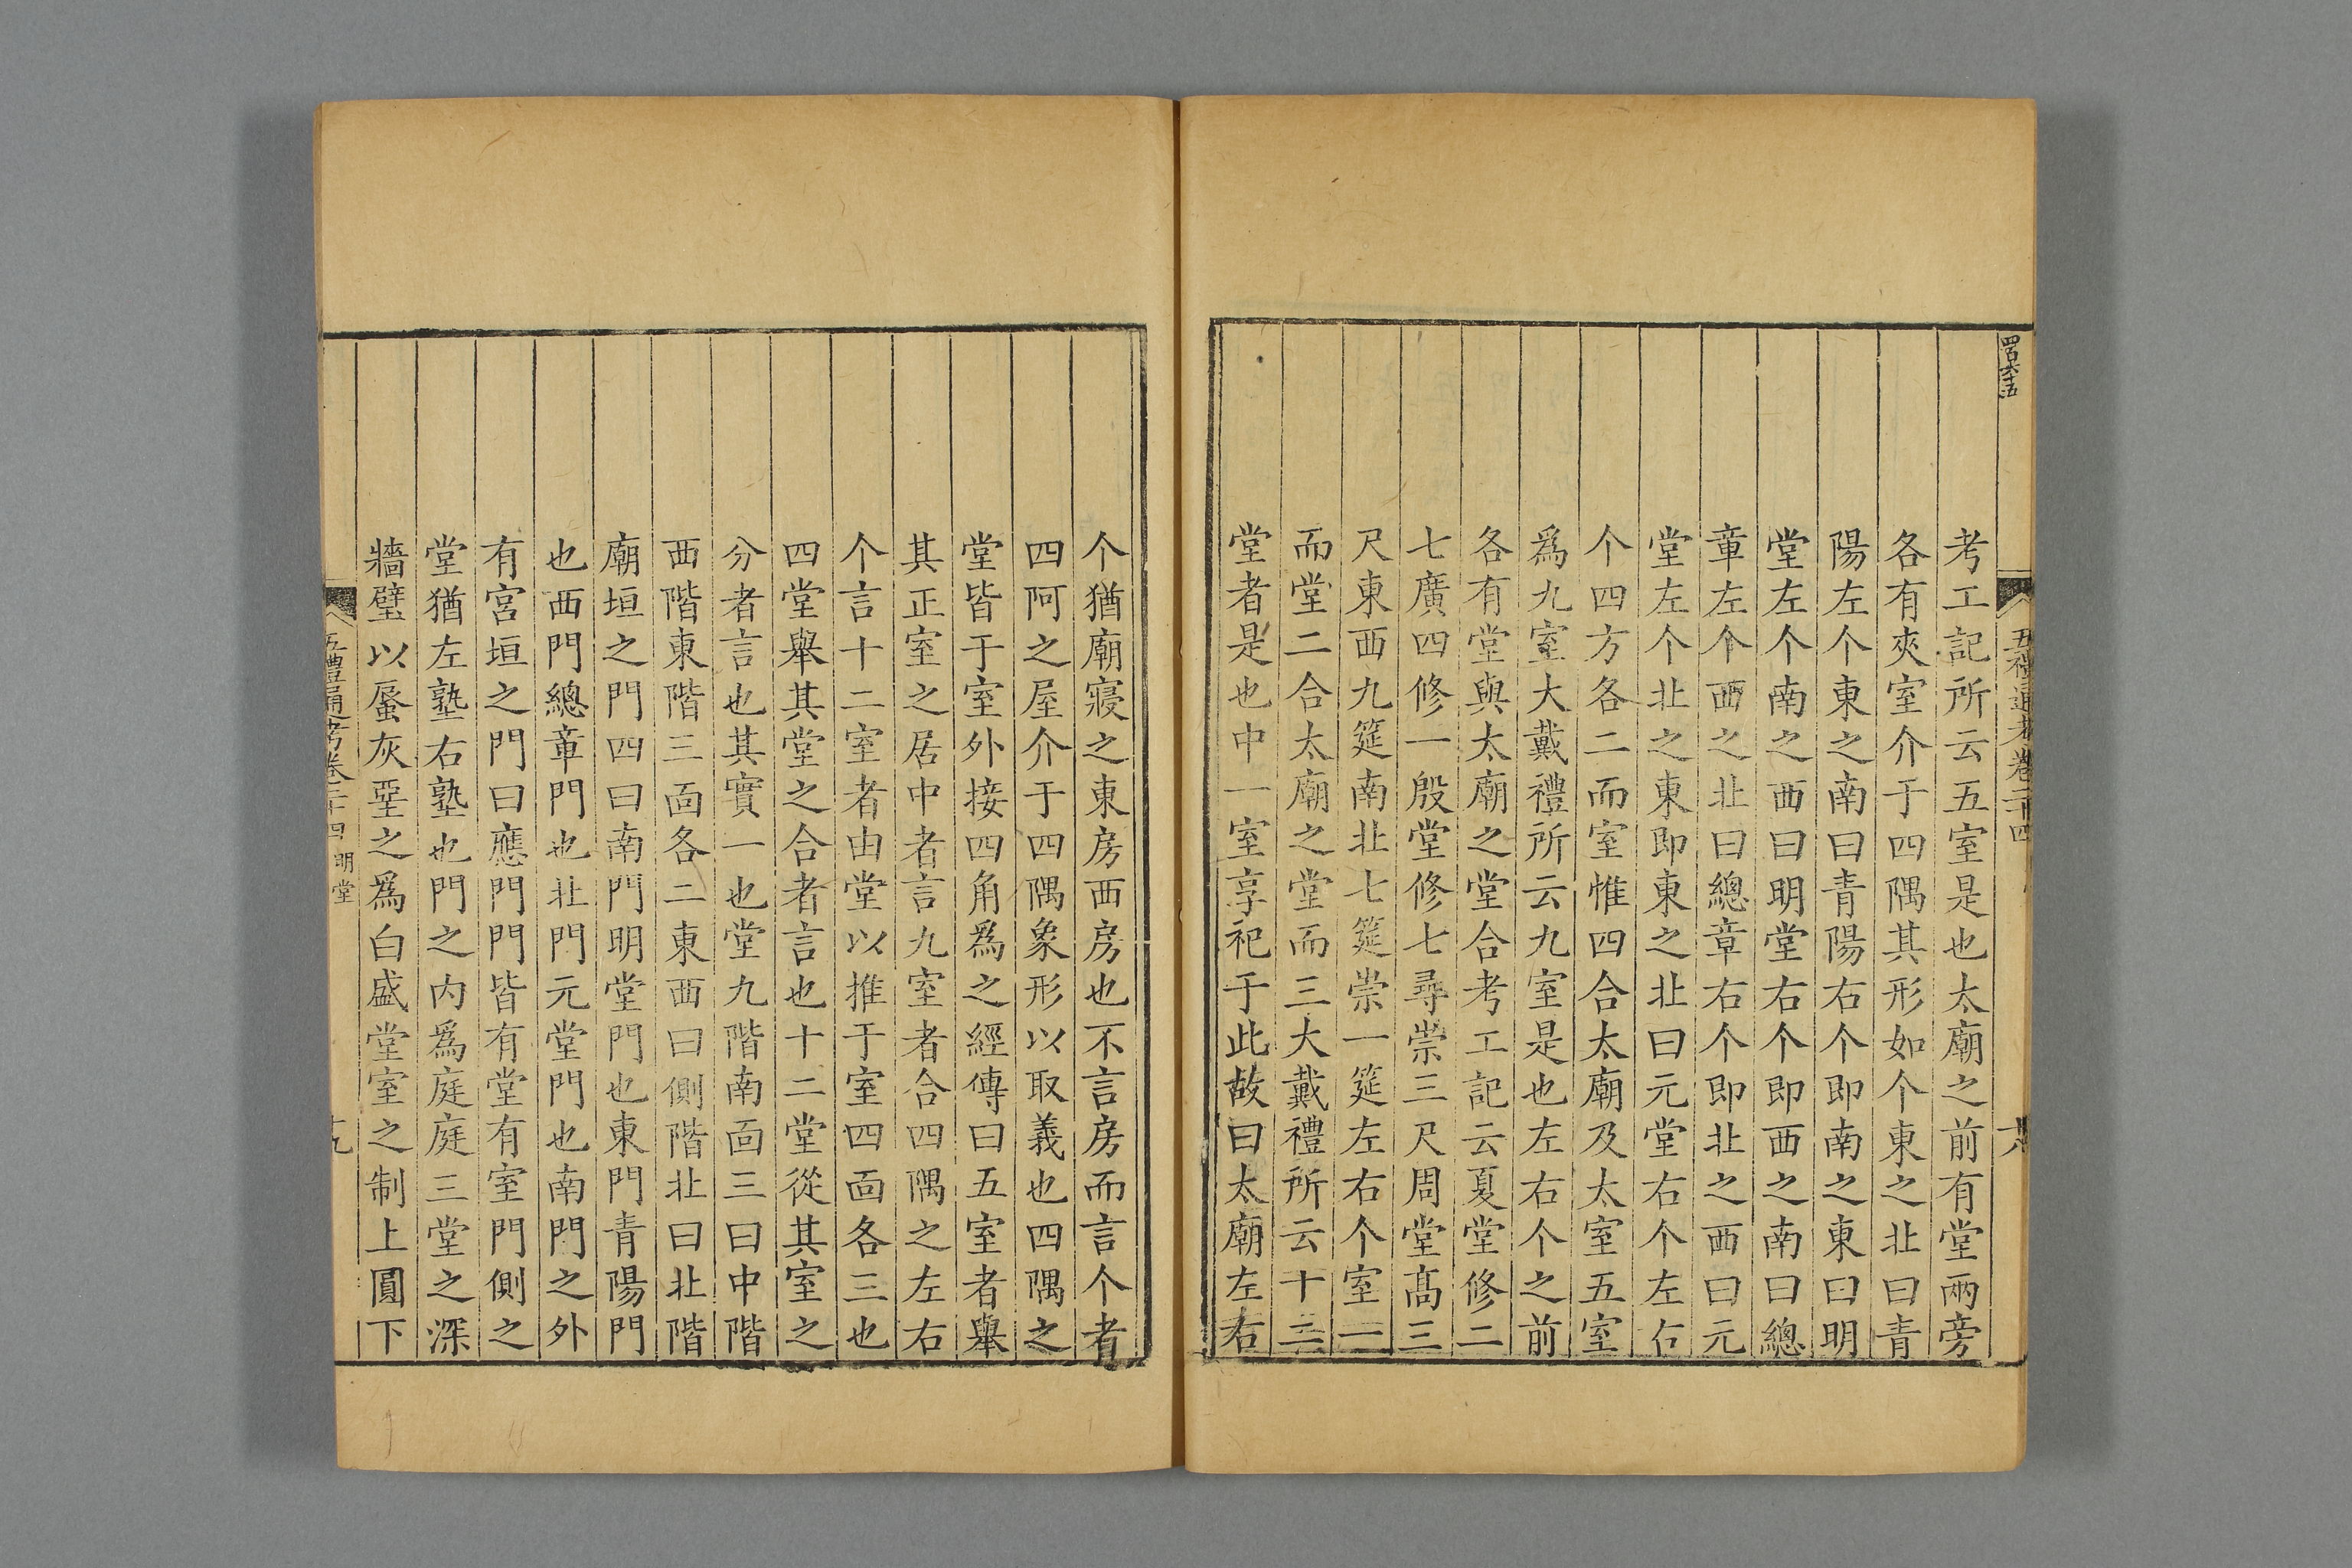 五禮通考卷二十四
考工記所云五室是也太廟之前有堂兩旁
各有夾室介于四隅其形如个東之北曰青
陽左个東之南曰青陽右个即南之東曰明
堂左个南之西曰明堂右个即西之南曰總
章左个西之北曰總章右个即北之西曰元
堂左个北之東即東之北曰元堂右个左右
个四方各二而室惟四合太廟及太室五室
爲九室大戴禮所云九室是也左右个之前
各有堂與太廟之堂合考工記云夏堂修二
七廣四修一殷堂修七尋崇三尺周堂髙三
尺東西九筵南北七筵崇一筵左右个室一
而堂二合太廟之堂而三大戴禮所云十二
堂者是也中一室享祀于此故曰太廟左右
个猶廟寢之東房西房也不言房而言个者
四阿之屋介于四隅象形以取義也四隅之
堂皆于室外接四角爲之經傳曰五室者舉
其正室之居中者言九室者合四隅之左右
个言十二室者由堂以推于室四面各三也
四堂舉其堂之合者言也十二堂從其室之
分者言也其實一也堂九階南面三曰中階
西階東階三面各二東西曰側階北曰北階
廟垣之門四曰南門明堂門也東門青陽門
也西門總章門也北門元堂門也南門之外
有宮垣之門曰應門門皆有堂有室門側之
堂猶左塾右塾也門之內爲庭庭三堂之深
牆壁以蜃灰堊之爲白盛堂室之制上圓下
五禮通考卷二十四 明堂
十九